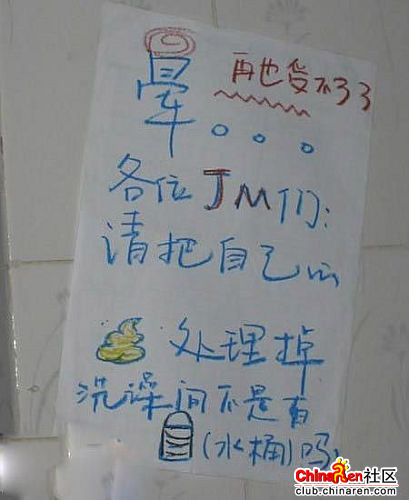 晕。。。
再也受不了了
各位JM们:
请把自己的
处理掉
洗澡间不是有
(水桶)吗
ChinaRen社区
club.chinaren.com